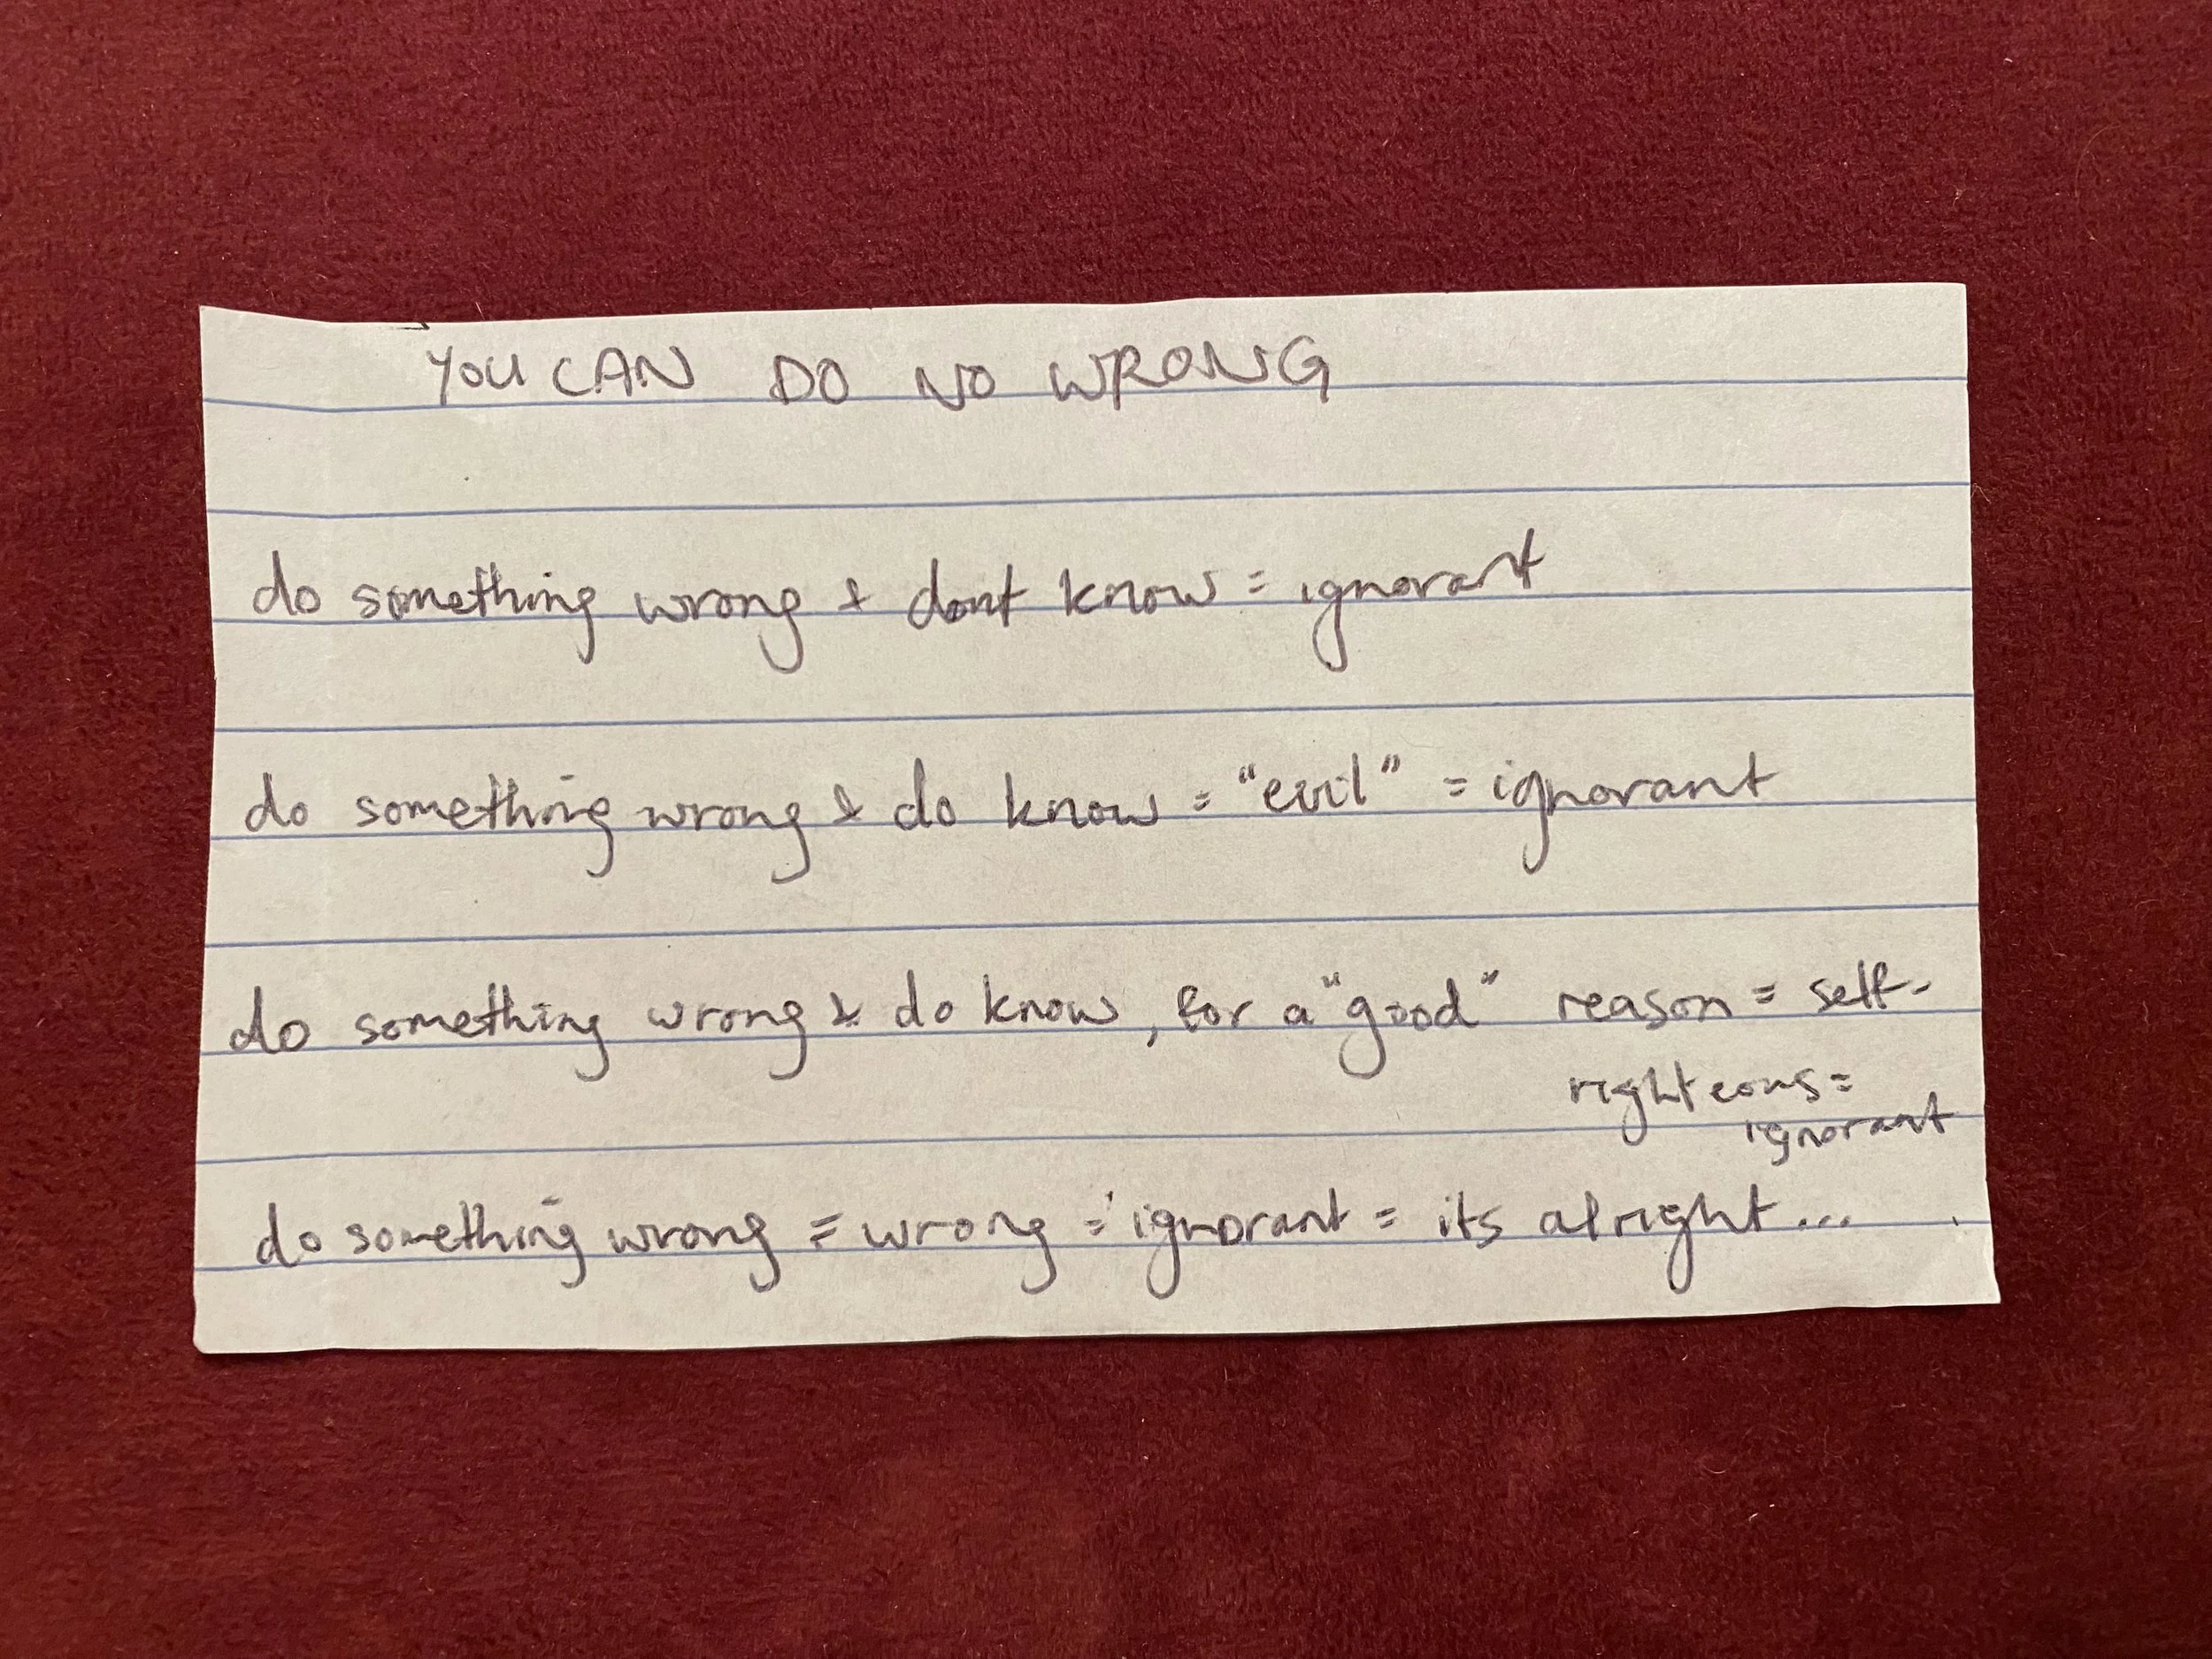 YOU CAN DO NO WRONG
do something wrong & dont know = ignorant
do something wrong & do know = "evil" = ignorant
do something wrong & do know, for a "good" reason = self-
righteous =
ignorant
do something wrong = wrong = ignorant = its alright...